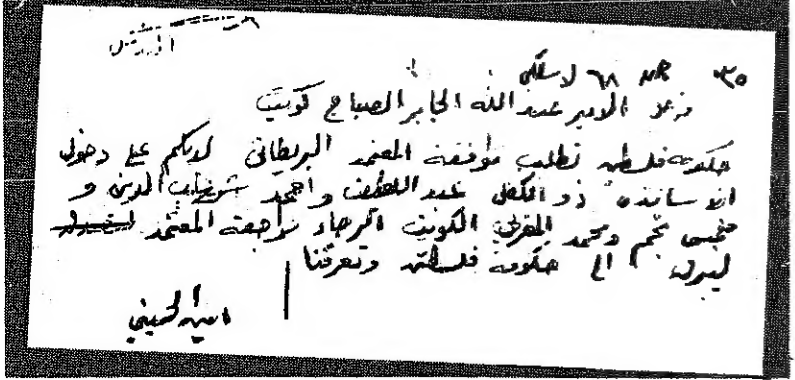 القدس
٣٥ NR ٦٨ لاسلكي
الامير عبد الله الجابر الصباح كويت
حكومة فلسطين تطلب موافقة المعتمد البريطاني لديكم على دخول
الاساتذة ذو الكفل عبد اللطيف واحمد شهاب الدين و
خميس نجم ومحمد المغربي الكويت الرجاء مراجعة المعتمد
ليبرق الى حكومة فلسطين وتعرفنا
امين الحسيني